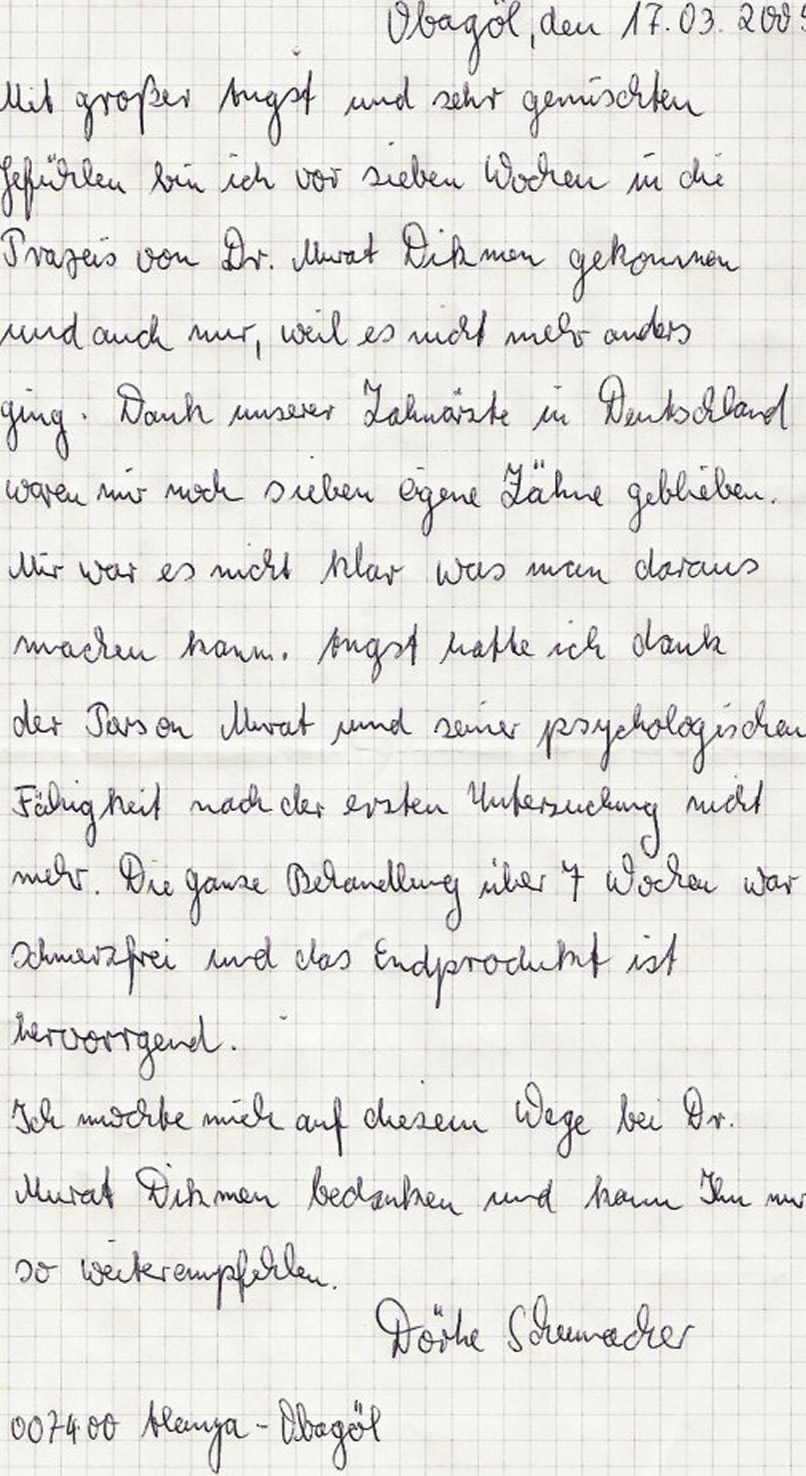 Obagöl, den 17.03.2009
Mit großer Angst und sehr gemischten
Gefühlen bin ich vor sieben Wochen in die
Praxis von Dr. Murat Dikmen gekommen
und auch nur, weil es nicht mehr anders
ging. Dank unserer Zahnärzte in Deutschland
waren mir noch sieben eigene Zähne geblieben.
Mir war es nicht klar was man daraus
machen kann. Angst hatte ich dank
der Person Murat und seiner psychologischen
Fähigkeit nach der ersten Untersuchung nicht
mehr. Die ganze Behandlung über 7 Wochen war
schmerzfrei und das Endprodukt ist
hervorrgend.
Ich möchte mich auf diesem Wege bei Dr.
Murat Dikmen bedanken und kann Ihn nur
so weiterempfehlen.
Dörhe Schumacher
007400 Alanya - Obagöl